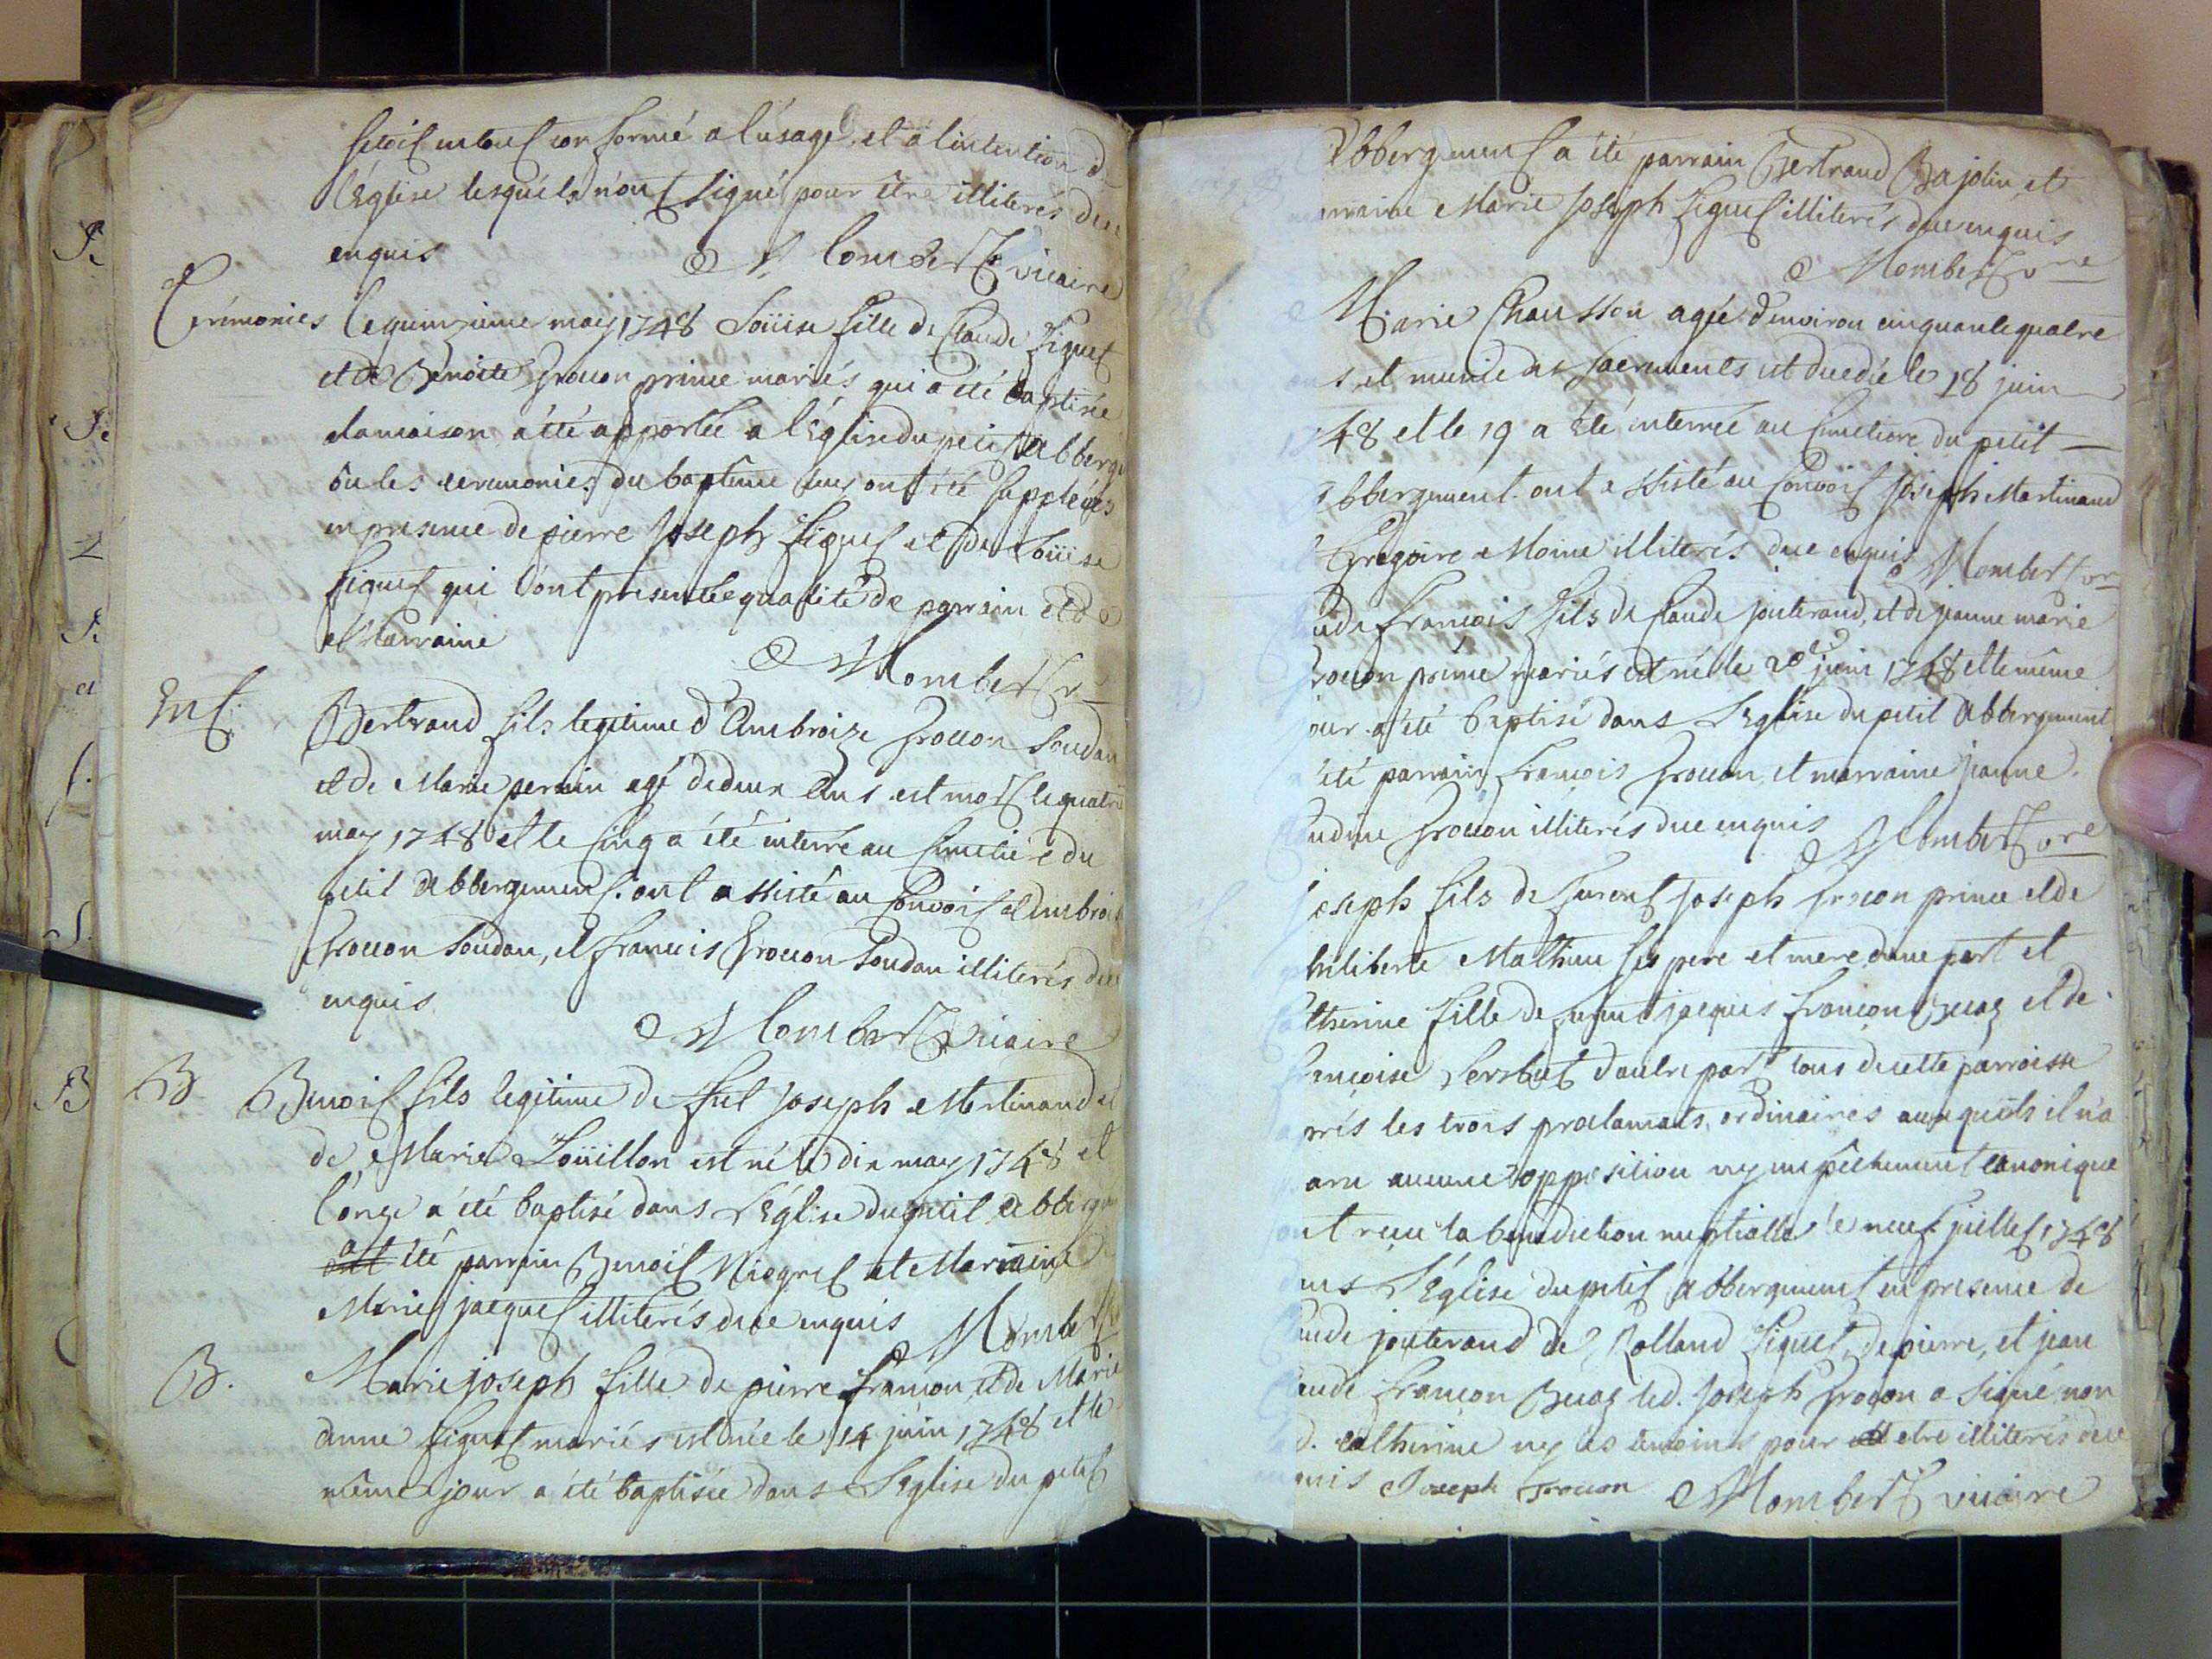 setoit en tout conformé a l'usage et a l'intention d
l'Eglise lesquels n'ont signé pour être illiterés due
enquis Mombert vicaire
Cérémonies
le quinzieme may 1748 Loüise fille de Claude Siguet
et de Benoite Jrocon prince mariés qui a été baptisée
a la maison a été apportée a l'Eglise du petit Abberge
ou les ceremonies du baptême luy ont été suppléées
en presence de pierre Joseph Siguet et de Loüise
Siguet qui l'ont presenté qualité de parrain et de
Marraine
Mombert vre
Ent.
Bertrand fils legitime d'Ambroize Jrocon Soudan
et de Marie perrin agé de deux ans est mort le quatre
may 1748 et le Cinq a été enterré au Cimetiere du
petit Abbergement. ont assisté au Convoit Ambrois
Jrocon Soudan, et francois Jrocon Soudan illiterés due
enquis
Mombert vicaire
B.
Benoit fils legitime de feu Joseph Martinand et
de Marie Loüillon est né le dix may 1748 et
l'onze a été baptisé dans l'Église du petit Abberge
a été parrain Benoit Niogret et Marraine
Marie jacquet illiterés due enquis Mombert
B.
Marie joseph fille de pierre françon et de Marie
anne Siguet mariés est née le 14 juin 1748 et le
même jour a été baptisée dans l'Eglise du petit
Abbergement a été parrain Bertrand Bajolin et
arraine Marie Joseph Siguet illiterés due enquis
Mombert vre
Marie Chausson agée d'environ cinquante quatre
s et munie des sacrements est decedée le 18 juin
1748 et le 19 a été enterrée au Cimetiere du petit
Abbergement ont assisté au Convoit Joseph Martinand
et Gregoire Moine illiterés due enquis Mombert vre
ude francois fils de Claude jouterand, et de jeanne marie
Jrocon prince mariés est né le 20e juin 1748 et le même
our a été baptisé dans l'Eglise du petit Abbergement
été parrain francois Jrocon et marraine jeanne
udine Jrocon illiterés due enquis
Mombert vre
joseph fils de furent Joseph Jrocon prince et de
hiliberte Mathieu ses pere et mere d'une part et
Catherine fille de furent jacques françon Buaz et de
françoise Sersbut d'autre part tous de cette parroisse
apres les trois proclamats ordinaires auxquels il n'a
aru aucune opposition ny empêchement canonique
ont reçu la benediction nuptialle le neuf juillet 1748
ans l'Église du petit Abbergement en presence de
aude jouterand de Rolland Siguet, de pierre, et jean
aude françon Buaz led. Joseph Jrocon a signé non
d. catherine ny les temoins pour etre illiterés due
enquis Joseph Jrocon Mombert vicaire